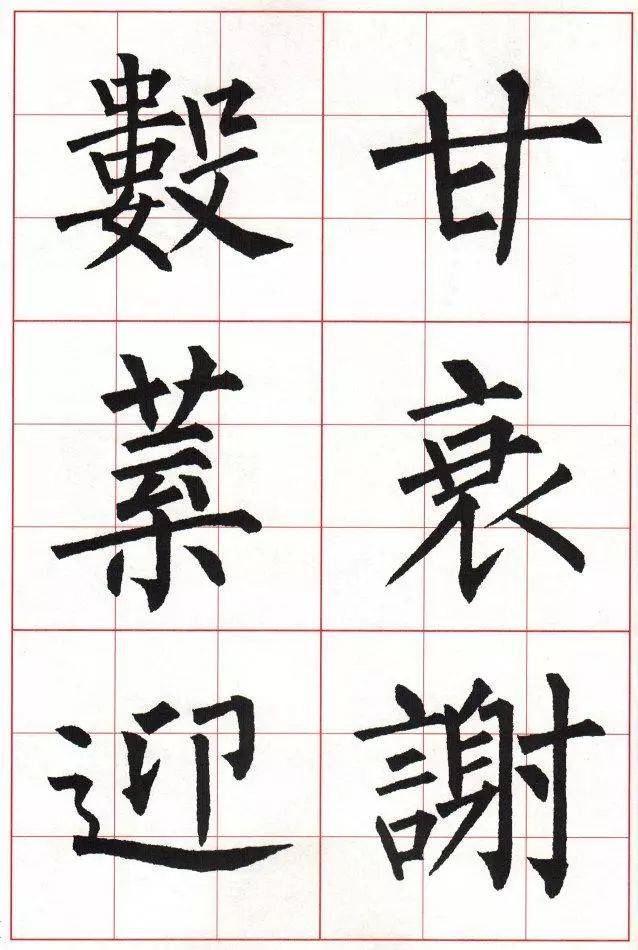 甘衰謝
數葉迎